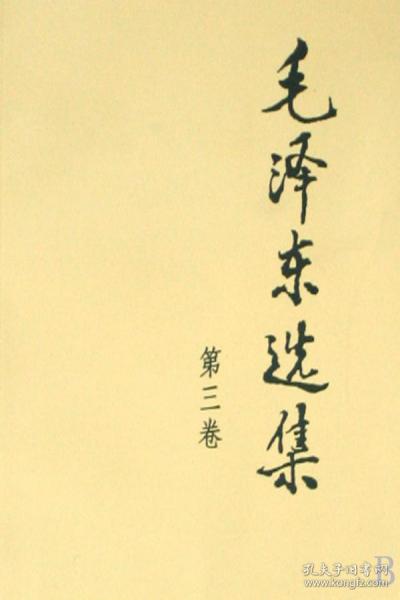 毛泽东选集
第三卷
B
孔夫子旧书网